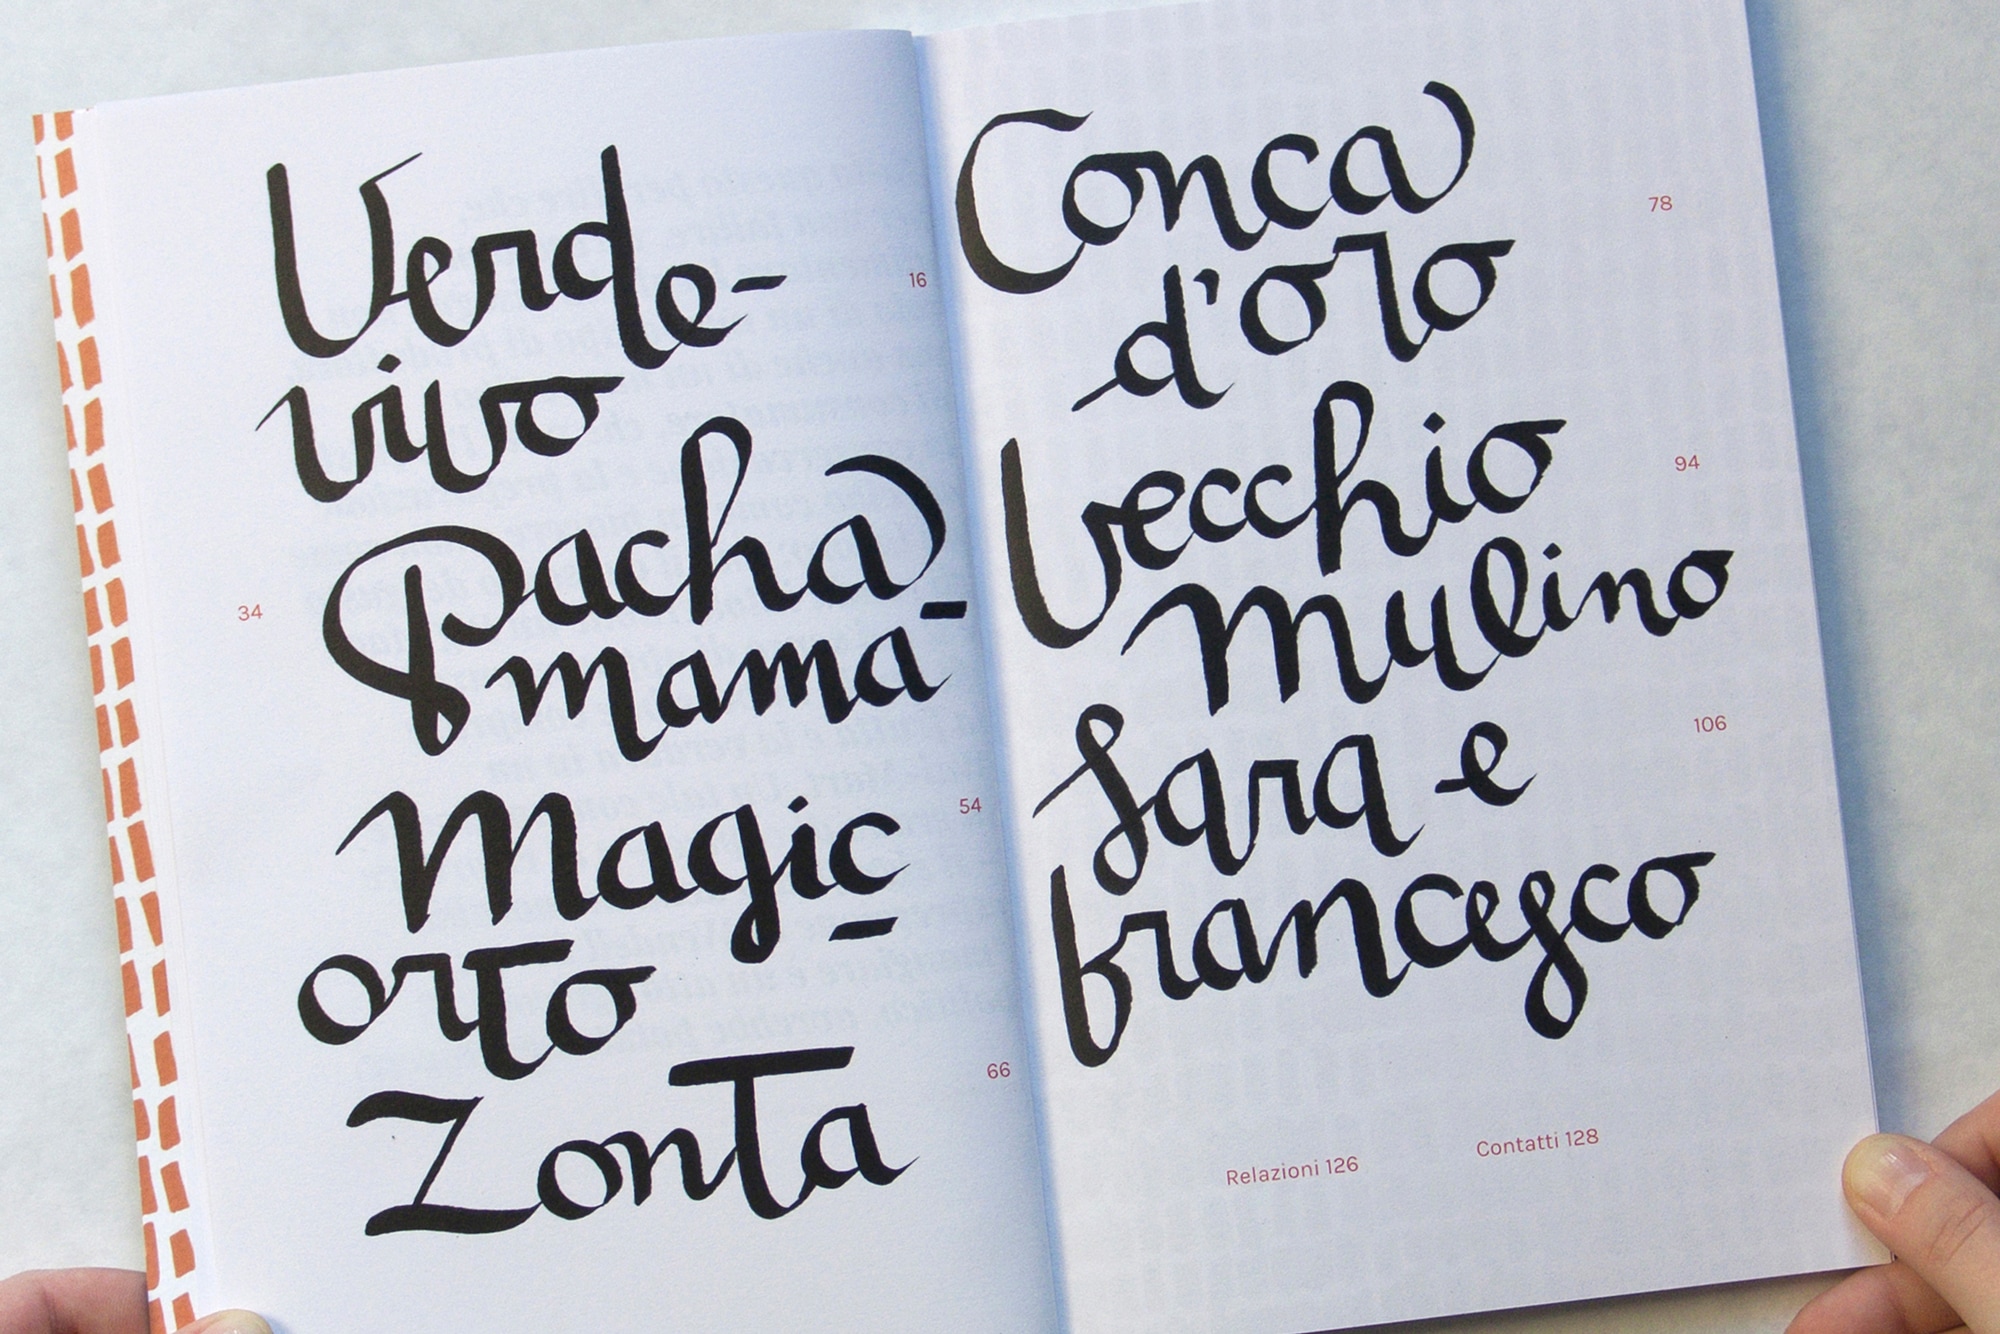 Verde-
16
vivo
Pacha-
34
mama
Magic-
54
orto
Zonta
66
Conca
78
d'oro
Vecchio
94
Mulino
Sara e
106
francesco
Relazioni 126
Contatti 128